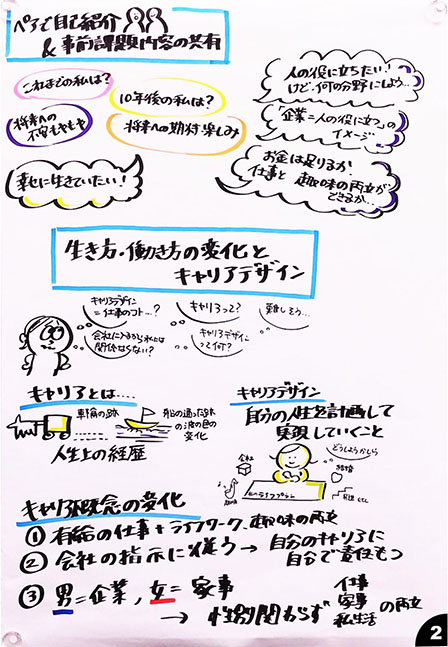 ペアで自己紹介
& 事前課題内容の共有
これまでの私は?
10年後の私は?
将来への
不安もやもや
将来への期待・楽しみ
幸せに生きていたい!
人の役に立ちたい!
けど、何の分野にしよう…
「企業=人の役に立つ」の
イメージ
お金は足りるか
仕事と趣味の両立が
できるか…
生き方・働き方の変化と
キャリアデザイン
キャリアデザイン
=仕事のコト…?
キャリアって?
難しそう…
会社に入るから私には
関係ならない?
キャリアデザイン
って何?
キャリアとは…
車輪の跡
船の通った跡
の波の色の
変化
人生上の経歴
キャリアデザイン
自分の人生を計画して
実現していくこと
どうしようかしら
会社
結婚
ライフプラン
etc
キャリア概念の変化
① 有給の仕事+ライフワーク、趣味の両立
② 会社の指示に従う → 自分のキャリアに
自分で責任もつ
③ 男=企業, 女=家事
→ 性別関わらず 仕事 家事 私生活 の両立
2